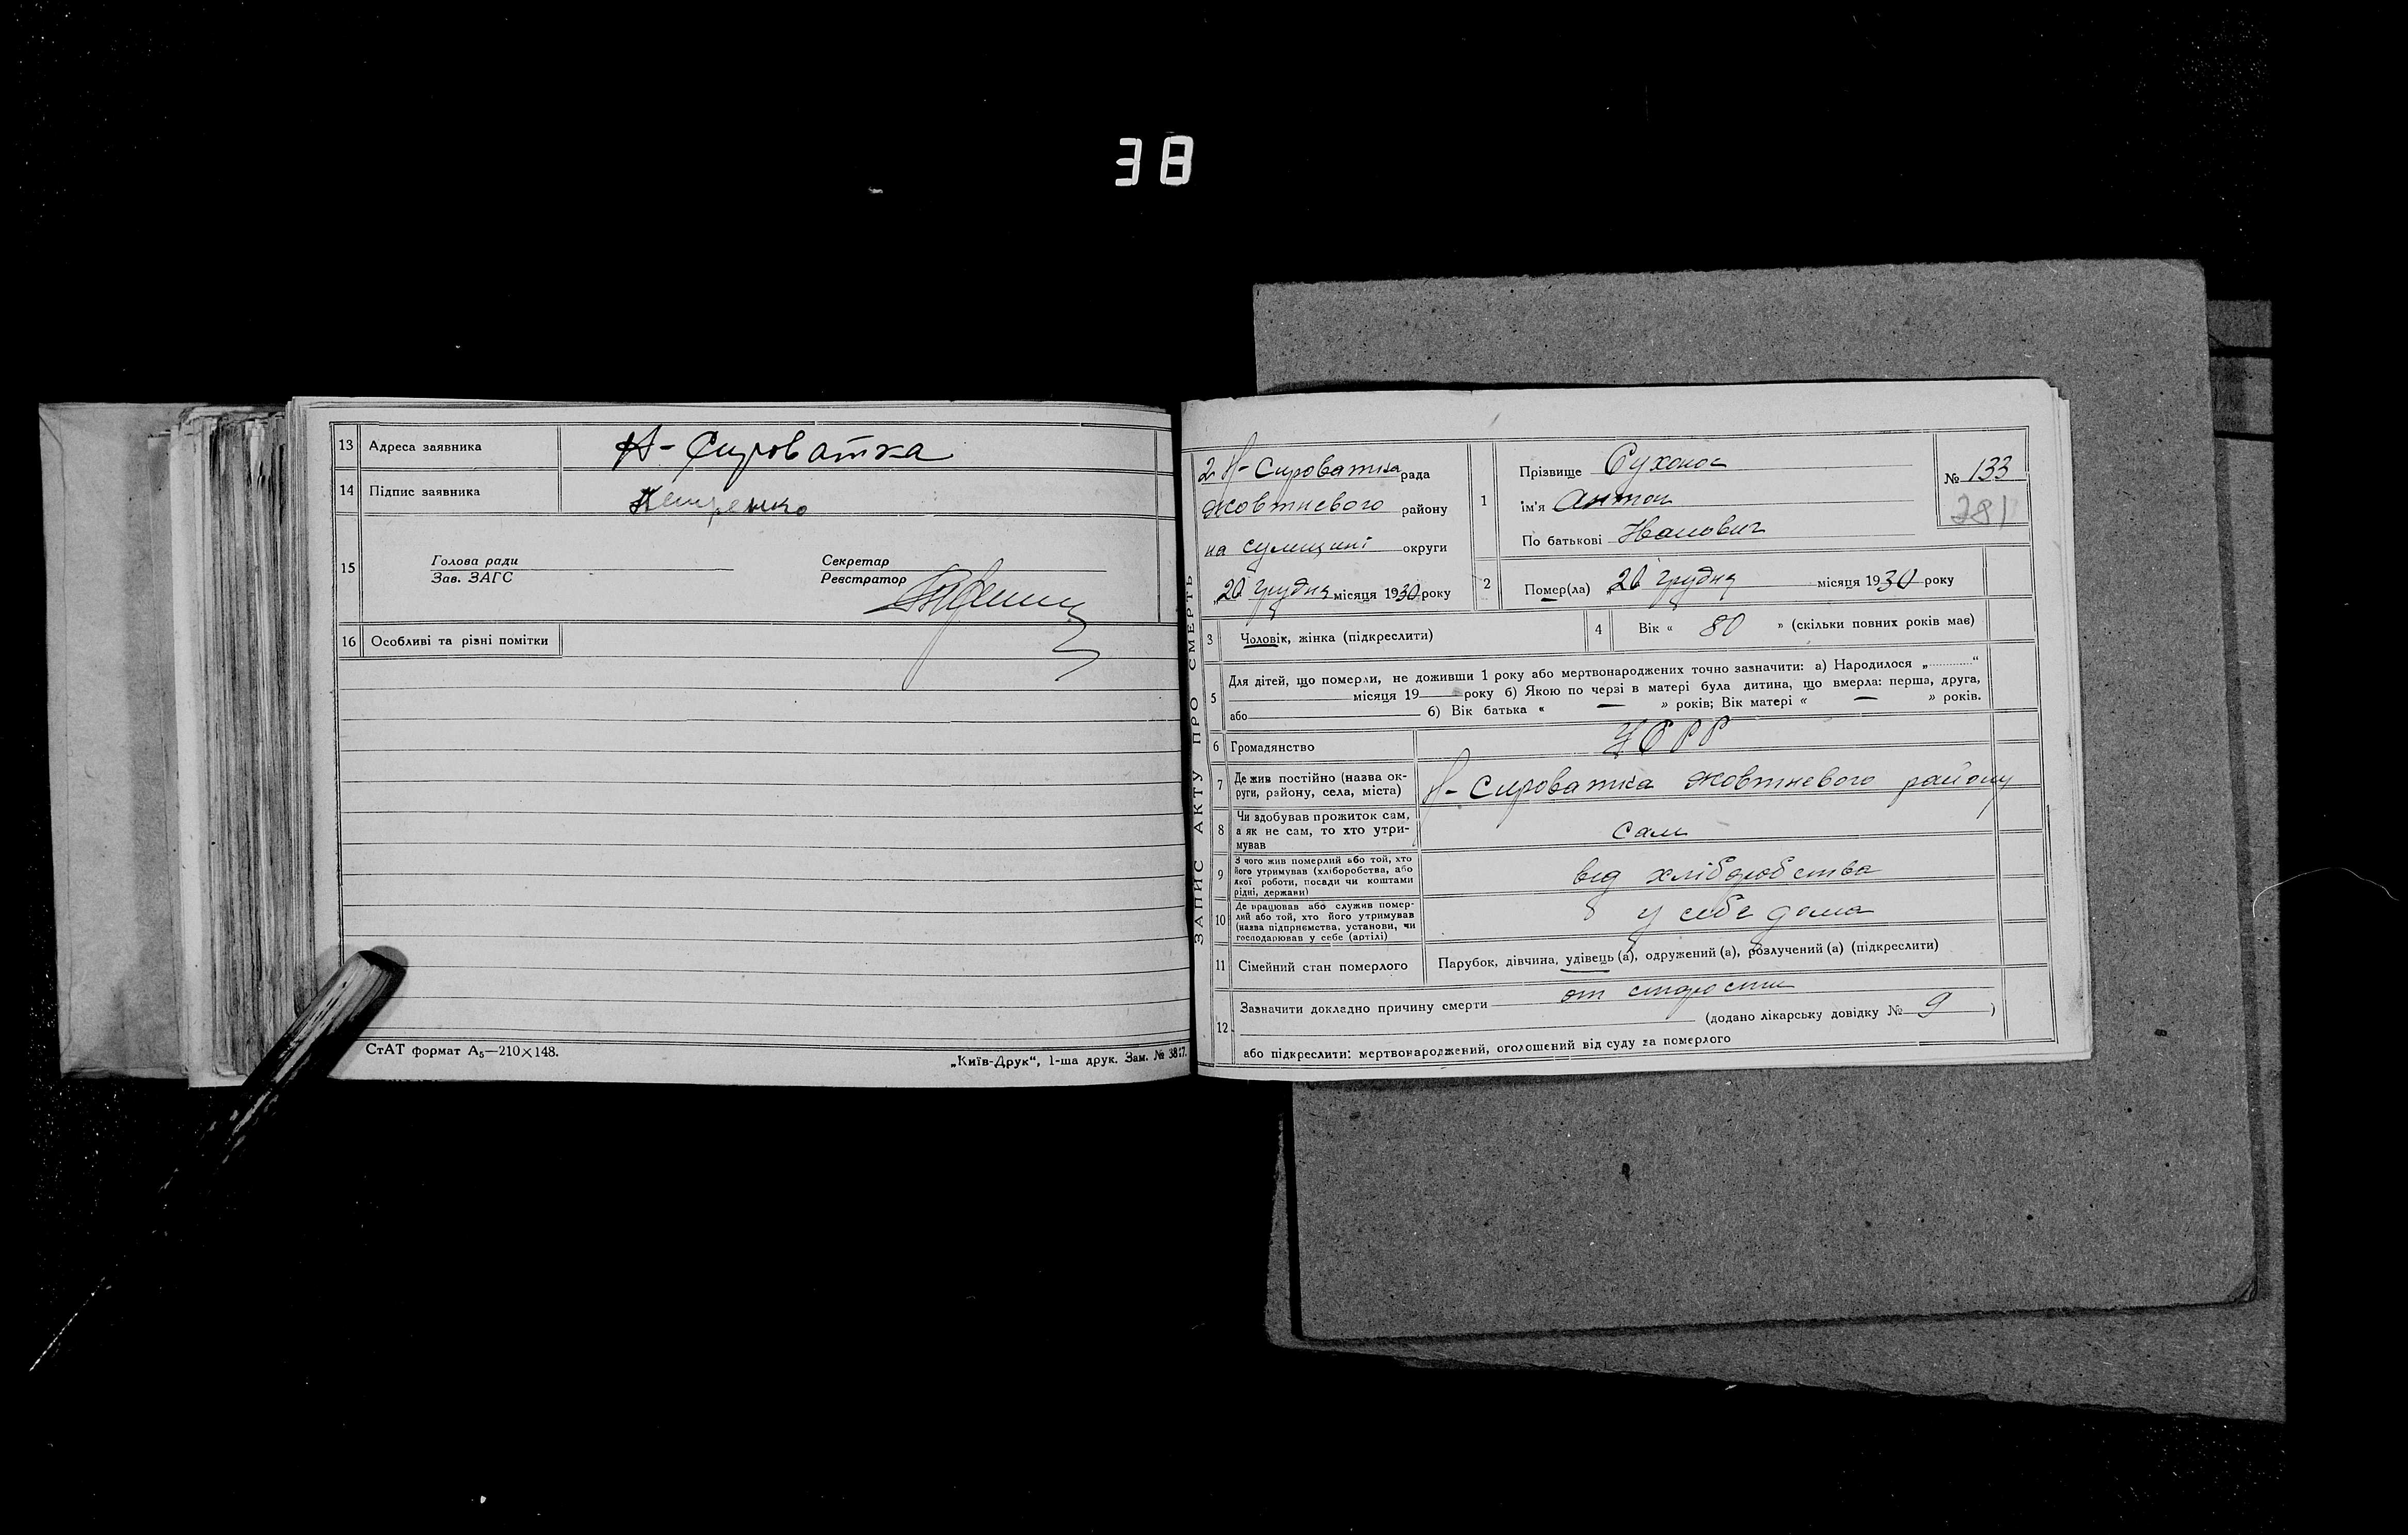 38
13 Адреса заявника Н-Сироватка
14 Підпис заявника
15 Голова ради Секретар
Зав. ЗАГС Реєстратор
16 Особливі та різні помітки
СтАТ формат А₅—210×148. „Київ-Друк“, 1-ша друк. Зам. № 3817.
ЗАПИС АКТУ ПРО СМЕРТЬ
2 Н-Сироватка рада
Жовтневого району
на Сумщині округи
„20 грудня місяця 1930 року
1 Прізвище Сухонос
ім'я Антон
По батькові Иванович
№ 133
281
2 Помер(ла) „20 грудня місяця 1930 року
3 Чоловік, жінка (підкреслити)
4 Вік « 80 » (скільки повних років має)
5 Для дітей, що померли, не доживши 1 року або мертвонароджених точно зазначити: а) Народилося „ “
місяця 19 — року б) Якою по черзі в матері була дитина, що вмерла: перша, друга,
або б) Вік батька « — » років; Вік матері « — » років.
6 Громадянство УСРР
7 Де жив постійно (назва ок-
руги, району, села, міста) Н-Сироватка Жовтневого району
8 Чи здобував прожиток сам,
а як не сам, то хто утри-
мував сам
9 З чого жив померлий або той, хто
його утримував (хліборобства, або
якої роботи, посади чи коштами
рідні, держави) від хліборобства
10 Де працював або служив помер-
лий або той, хто його утримував
(назва підприємства, установи, чи
господарював у себе (артілі) у себе дома
11 Сімейний стан померлого Парубок, дівчина, удівець (а), одружений (а), розлучений (а) (підкреслити)
12 Зазначити докладно причину смерти от старости
(додано лікарську довідку № 9 )
або підкреслити: мертвонароджений, оголошений від суду за померлого